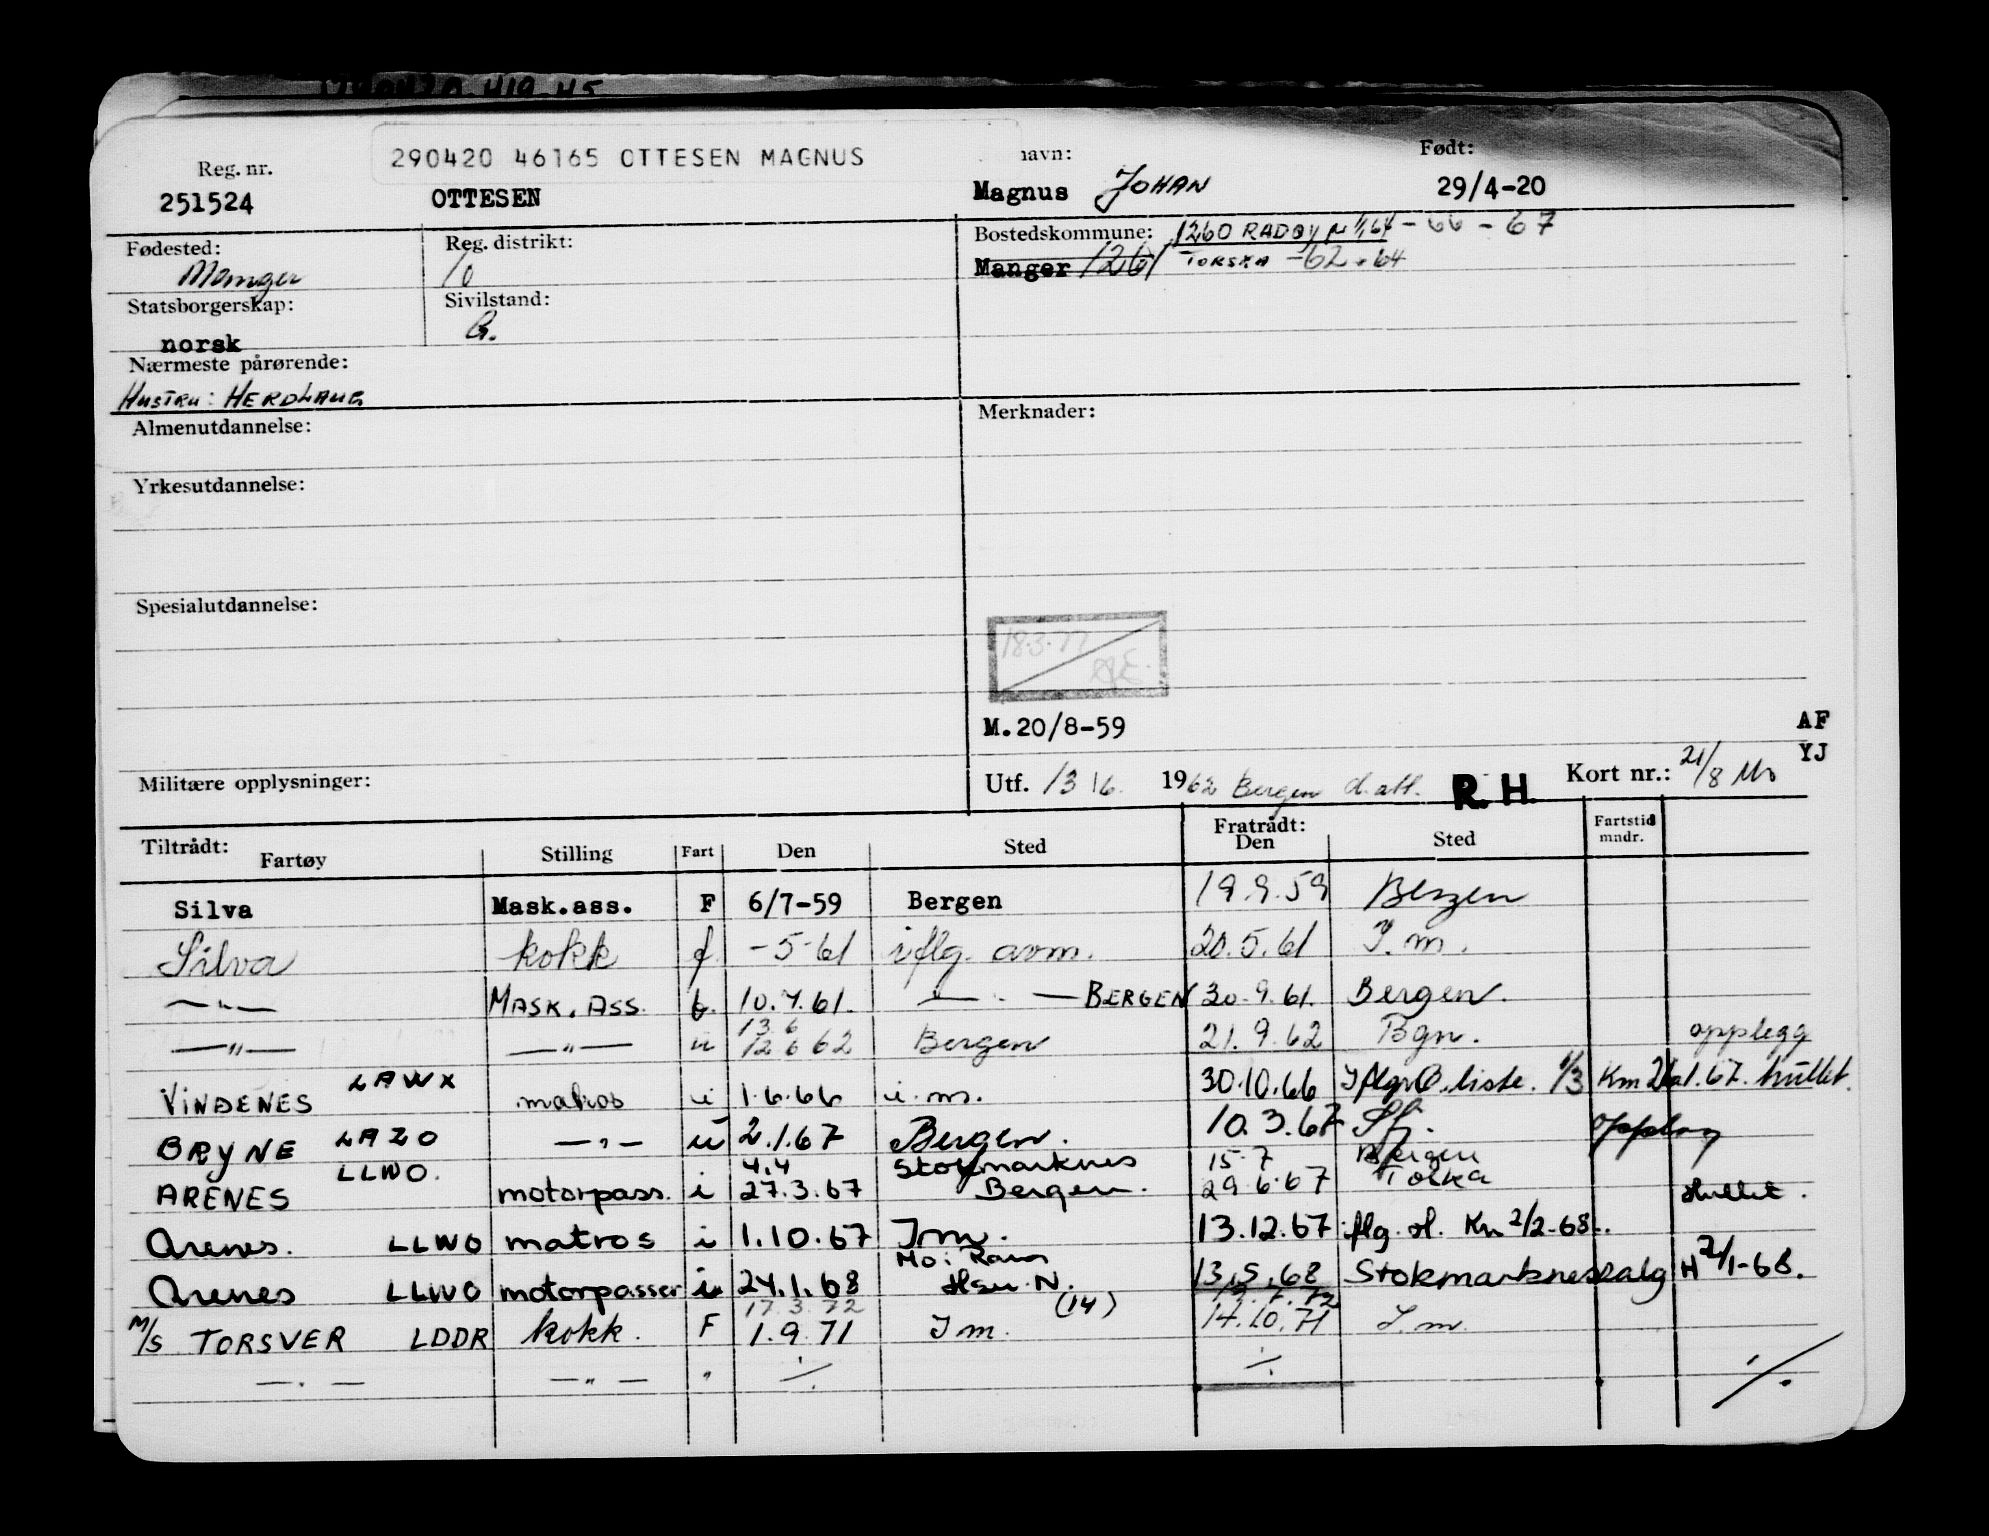 290420 46165 OTTESEN MAGNUS
Reg. nr. navn: Født:
251524 OTTESEN Magnus JOHAN 29/4-20
Fødested: Reg. distrikt: Bostedskommune: 1260 RADØY - 66 - 67
Manger 10 Manger 1261 TORSKA -62-64
Statsborgerskap: Sivilstand:
norsk G.
Nærmeste pårørende:
HUSTRU: HERDLAUG
Almenutdannelse: Merknader:
Yrkesutdannelse:
Spesialutdannelse:
18.3.77
AE.
M.20/8-59 AF
YJ
Militære opplysninger: Utf. 13/6. 1962 Bergen d.att. R.H. Kort nr.: 21/8
Tiltrådt: Fratrådt: Fartstid
Fartøy Stilling Fart Den Sted Den Sted mndr.
Silva Mask.ass. F 6/7-59 Bergen 19.9.59 Bergen
Silva kokk f -5-61 iflg. avm. 20.5.61 I.m.
— " — MASK. ASS. f. 10.7.61. — . — BERGEN 30.9.61. Bergen.
13.6
— " — — " — u 12.6 62 Bergen 21.9.62 Bgn. opplegg
VINDENES LAWX matros i 1.6.66 i.m. 30.10.66 liste. 1/3 Km 1.67. hullet.
BRYNE LAZO — " — u 2.1.67 Bergen. 10.3.67 Sfj. opplag
LLWO. 4.4 Stokmarknes 15.7 Bergen
ARENES motorpass. i 27.3.67 Bergen. 29.6.67 Toska Hullet.
Arenes. LLWO matros i 1.10.67 I m. 13.12.67 iflg. H. Kn 2/2-68.
Mo i Rana
Arenes LLWO motorpasser i 24.1.68 N. 13.5.68 Stokmarknes salg H 21/1-68.
17.3.72 (14)
M/S TORSVER LDDR kokk. F 1.9.71 I m. 14.10.71 I.m.
— " — — " — " ./. ./. ./.